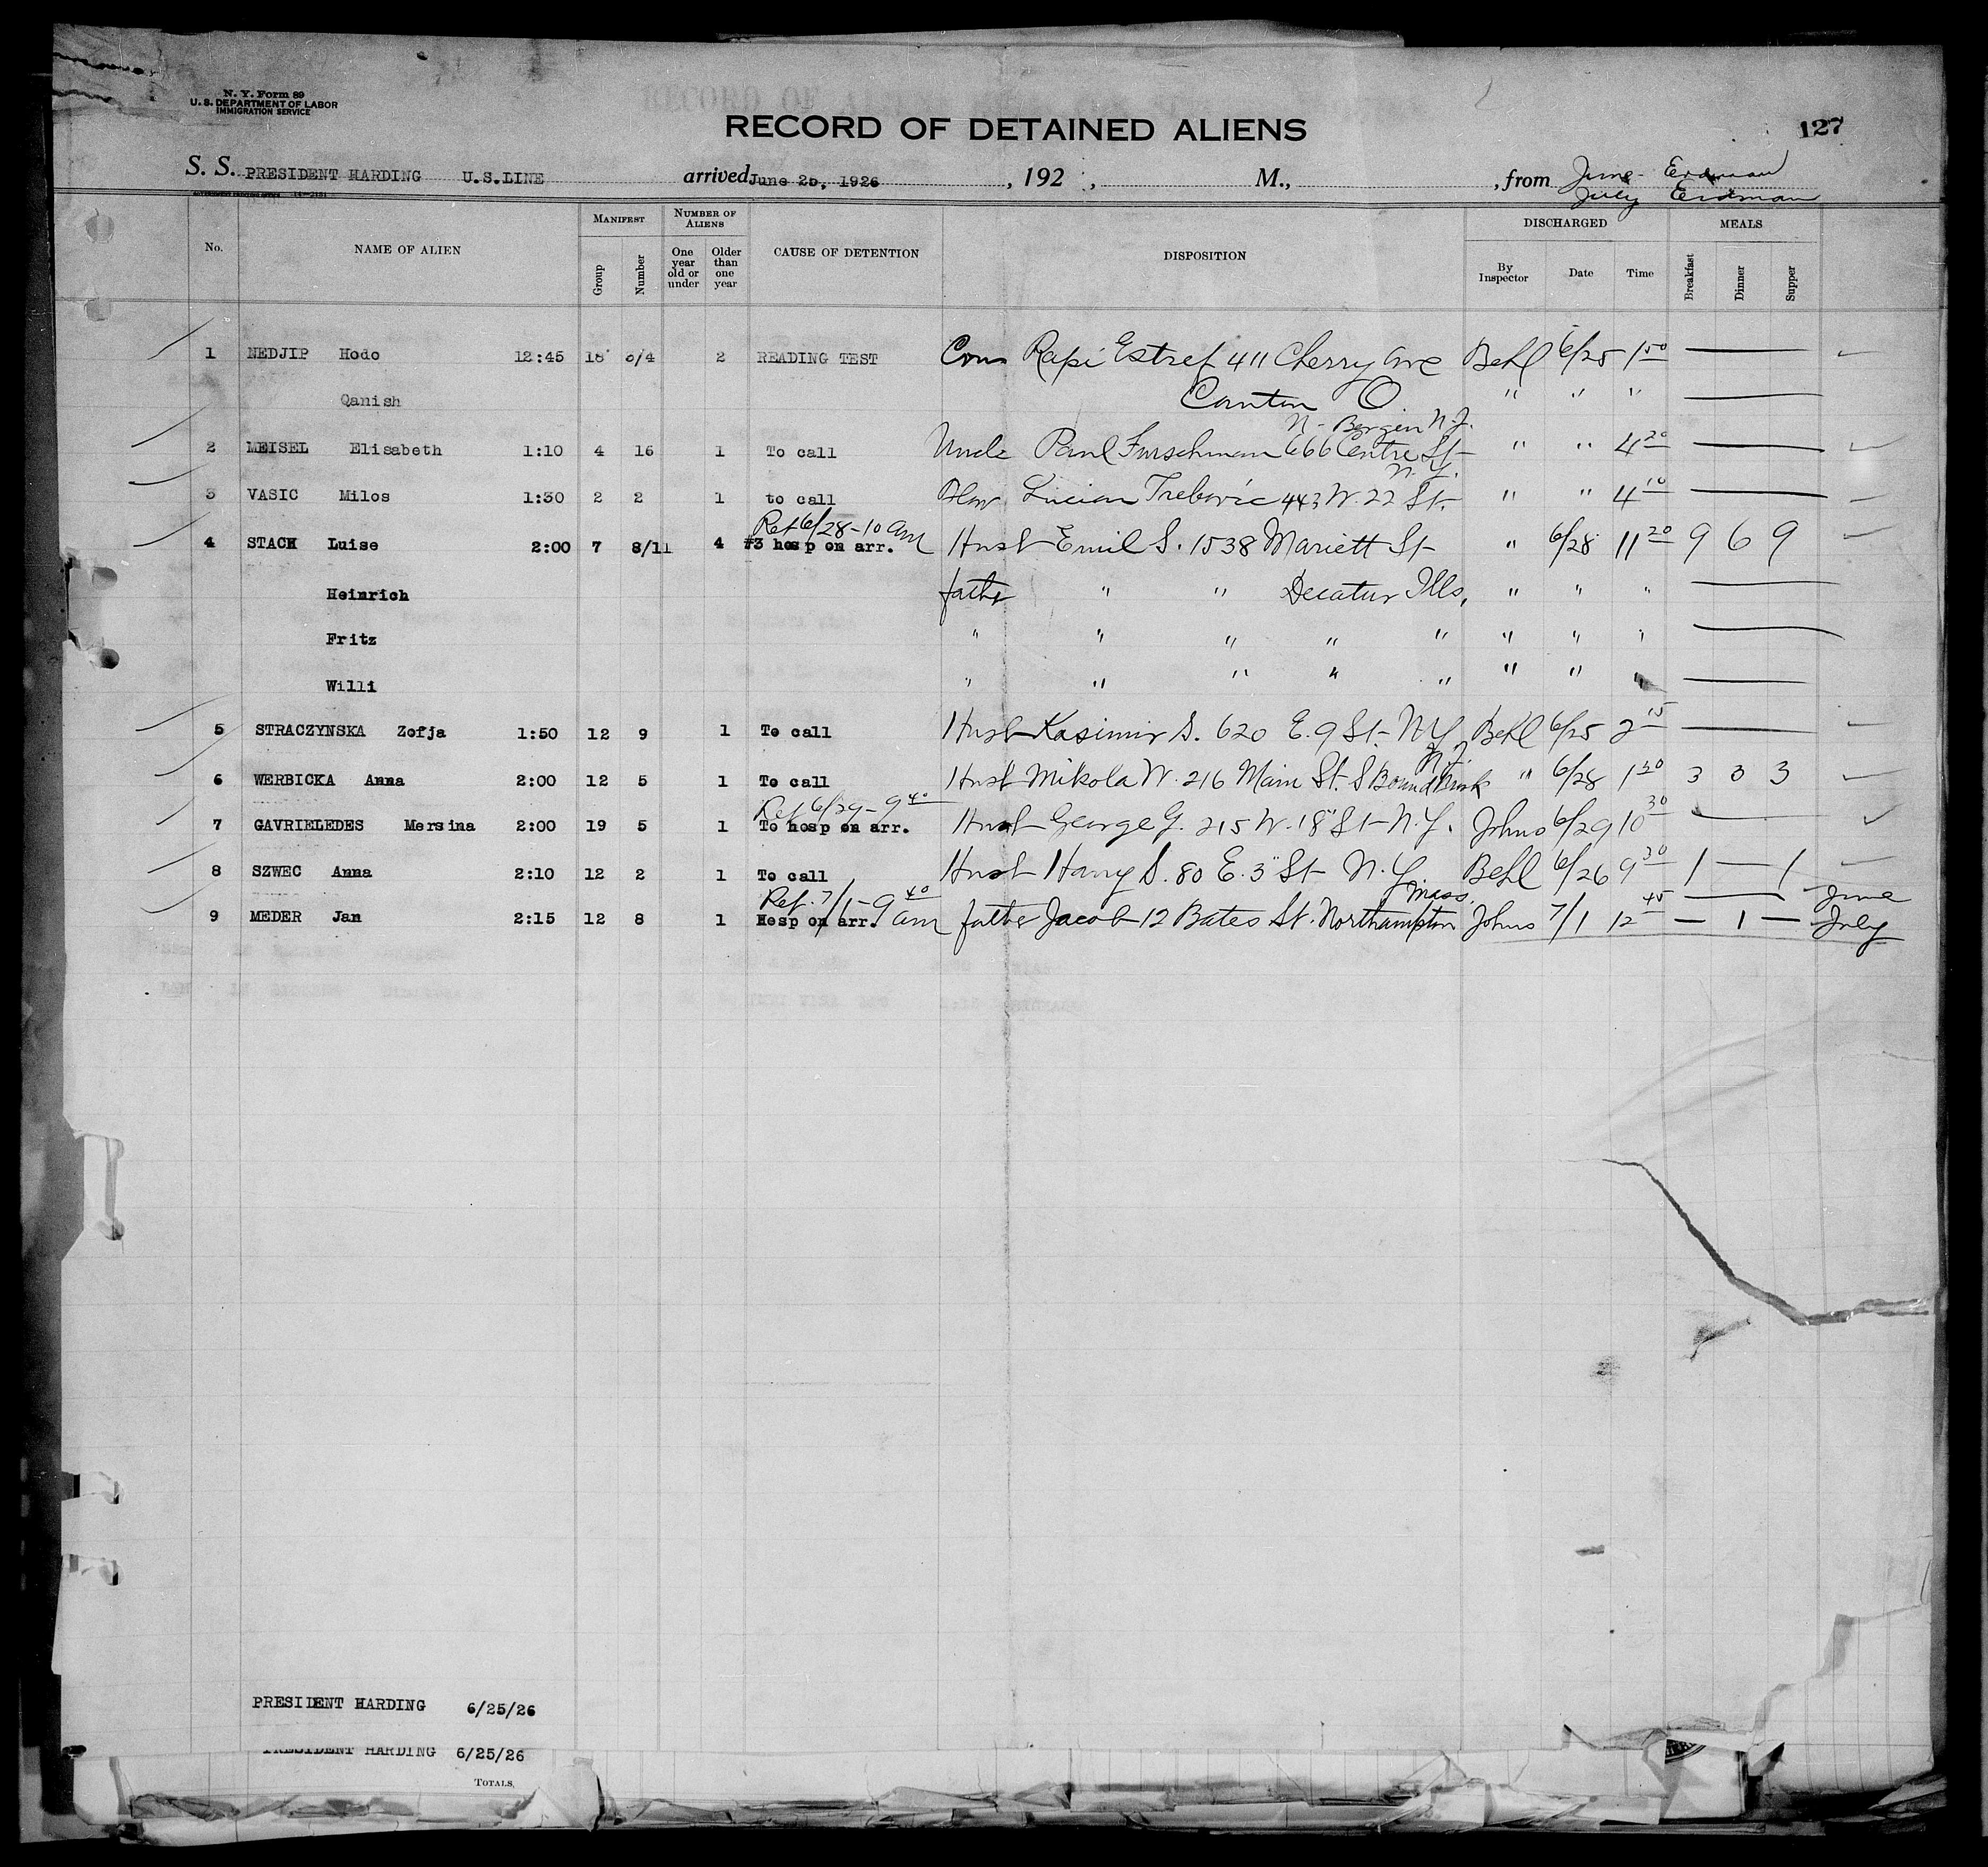 N. Y. Form 89
U. S. DEPARTMENT OF LABOR
IMMIGRATION SERVICE
RECORD OF DETAINED ALIENS
127
S. S. PRESIDENT HARDING U.S.LINE arrived June 25, 1926, 192 , M., , from June - Erdman
July Erdman
No. NAME OF ALIEN MANIFEST Group Number NUMBER OF ALIENS One year old or under Older than one year CAUSE OF DETENTION DISPOSITION DISCHARGED By Inspector Date Time MEALS Breakfast Dinner Supper
1 NEDJIP Hodo 12:45 18 3/4 2 READING TEST Cous Rapi Estref 411 Cherry Ave Behl 6/25 1 50 —
Qanish Canton O " " " —
N. Bergen N.J.
2 MEISEL Elisabeth 1:10 4 16 1 To call Uncle Paul Furschman 666 Centre St " " 4 20 —
N.Y.
3 VASIC Milos 1:30 2 2 1 to call Lucian Trebovic 443 W. 22 St. " " 4 10 —
Ret 6/28-10 am
4 STACH Luise 2:00 7 8/11 4 #3 hosp on arr. Husb Emil S. 1538 Mariett St " 6/28 11 20 9 6 9
Heinrich father " " Decatur Ills, " " " —
Fritz " " " " " " " " —
Willi " " " " " " " " —
5 STRACZYNSKA Zofja 1:50 12 9 1 To call Husb Kasimir S. 620 E. 9 St- N.Y. Behl 6/25 2 15 —
N.J.
6 WERBICKA Anna 2:00 12 5 1 To call Husb Mikola W. 216 Main St. S Bound Brook " 6/28 1 30 3 3 3
Ret 6/29-9 40
7 GAVRIELEDES Mersina 2:00 19 5 1 To hosp on arr. Husb George G. 215 W. 18" St- N.Y. Johns 6/29 10 30 —
8 SZWEC Anna 2:10 12 2 1 To call Husb Harry S. 80 E. 3" St N.Y. Behl 6/26 9 30 1 — 1
Ret. 7/1-9 40 am Mass. — June
9 MEDER Jan 2:15 12 8 1 Hosp on arr. father Jacob 12 Bates St. Northampton Johns 7/1 12 45 — 1 — July
PRESIDENT HARDING 6/25/26
PRESIDENT HARDING 6/25/26
TOTALS,